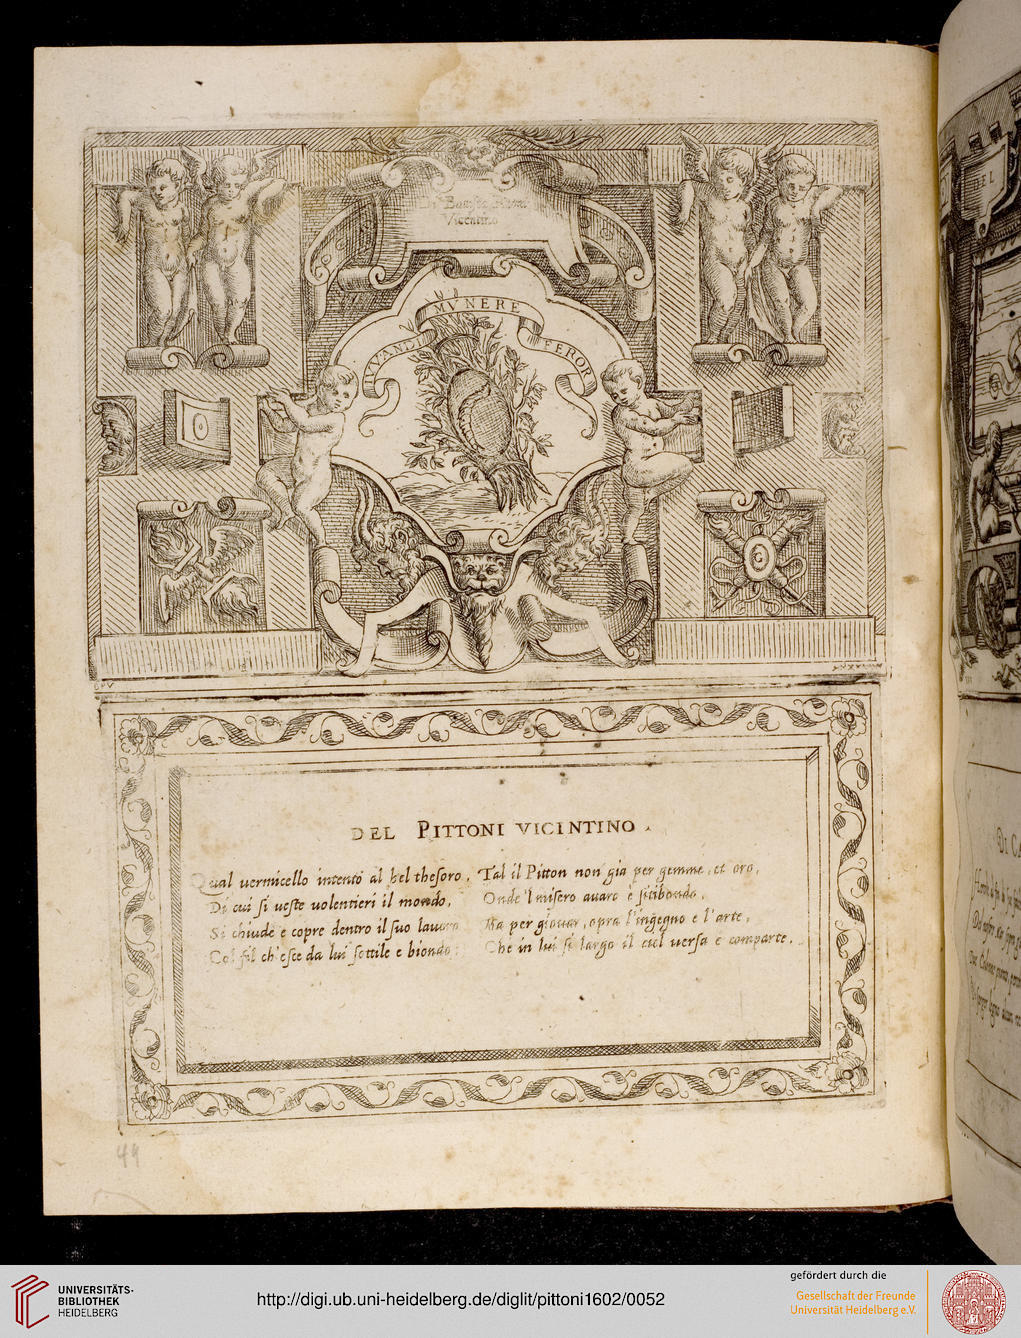 Di Battista Pittoni
Vicentino
IVVANDI MVNERE FEROR
G
DEL
DEL PITTONI VICINTINO.
Qual vermicello intento al bel thesoro,
Di cui si ueste uolentieri il mondo,
Si chiude e copre dentro il suo lauoro
Col fil ch'esce da lui sottile e biondo:
Tal il Pitton non gia per gemme, et oro,
Onde'l misero auaro è sitibondo,
Ma per giouar, opra l'ingegno e l'arte,
Che in lui sì largo il ciel uersa e comparte.
49
UNIVERSITÄTS-
BIBLIOTHEK
HEIDELBERG
http://digi.ub.uni-heidelberg.de/diglit/pittoni1602/0052
gefördert durch die
Gesellschaft der Freunde
Universität Heidelberg e.V.